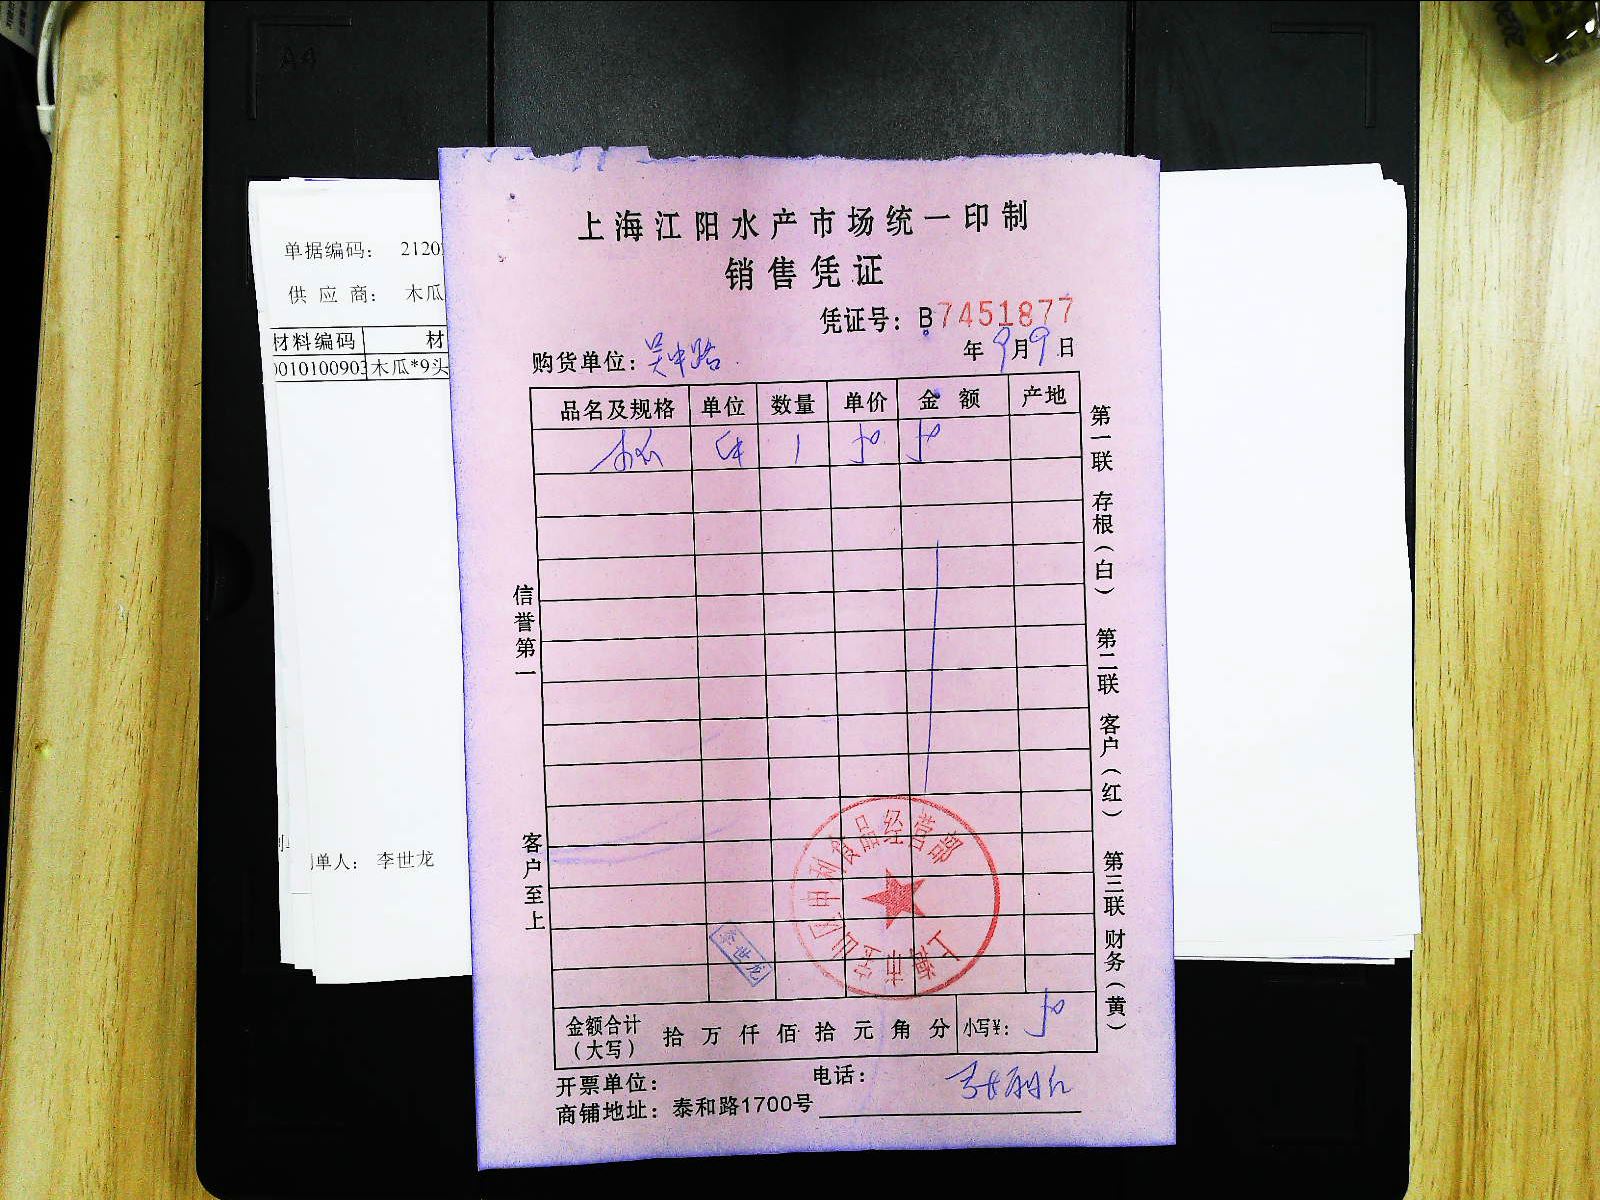 A4
单据编码: 2120
供 应 商: 木瓜
材料编码 材
木瓜*9头
单人: 李世龙
上海江阳水产市场统一印制
销售凭证
凭证号: B7451877
购货单位: 吴中路 年 9月9日
品名及规格 单位 数量 单价 金 额 产地
木瓜 件 1 50 50
信誉第一
客户至上
第一联 存根(白) 第二联 客户(红) 第三联 财务(黄)
上海市宝山区申利食品经营部
李世龙
金额合计(大写) 拾 万 仟 佰 拾 元 角 分 小写¥: 50
开票单位: 电话:
商铺地址: 泰和路1700号